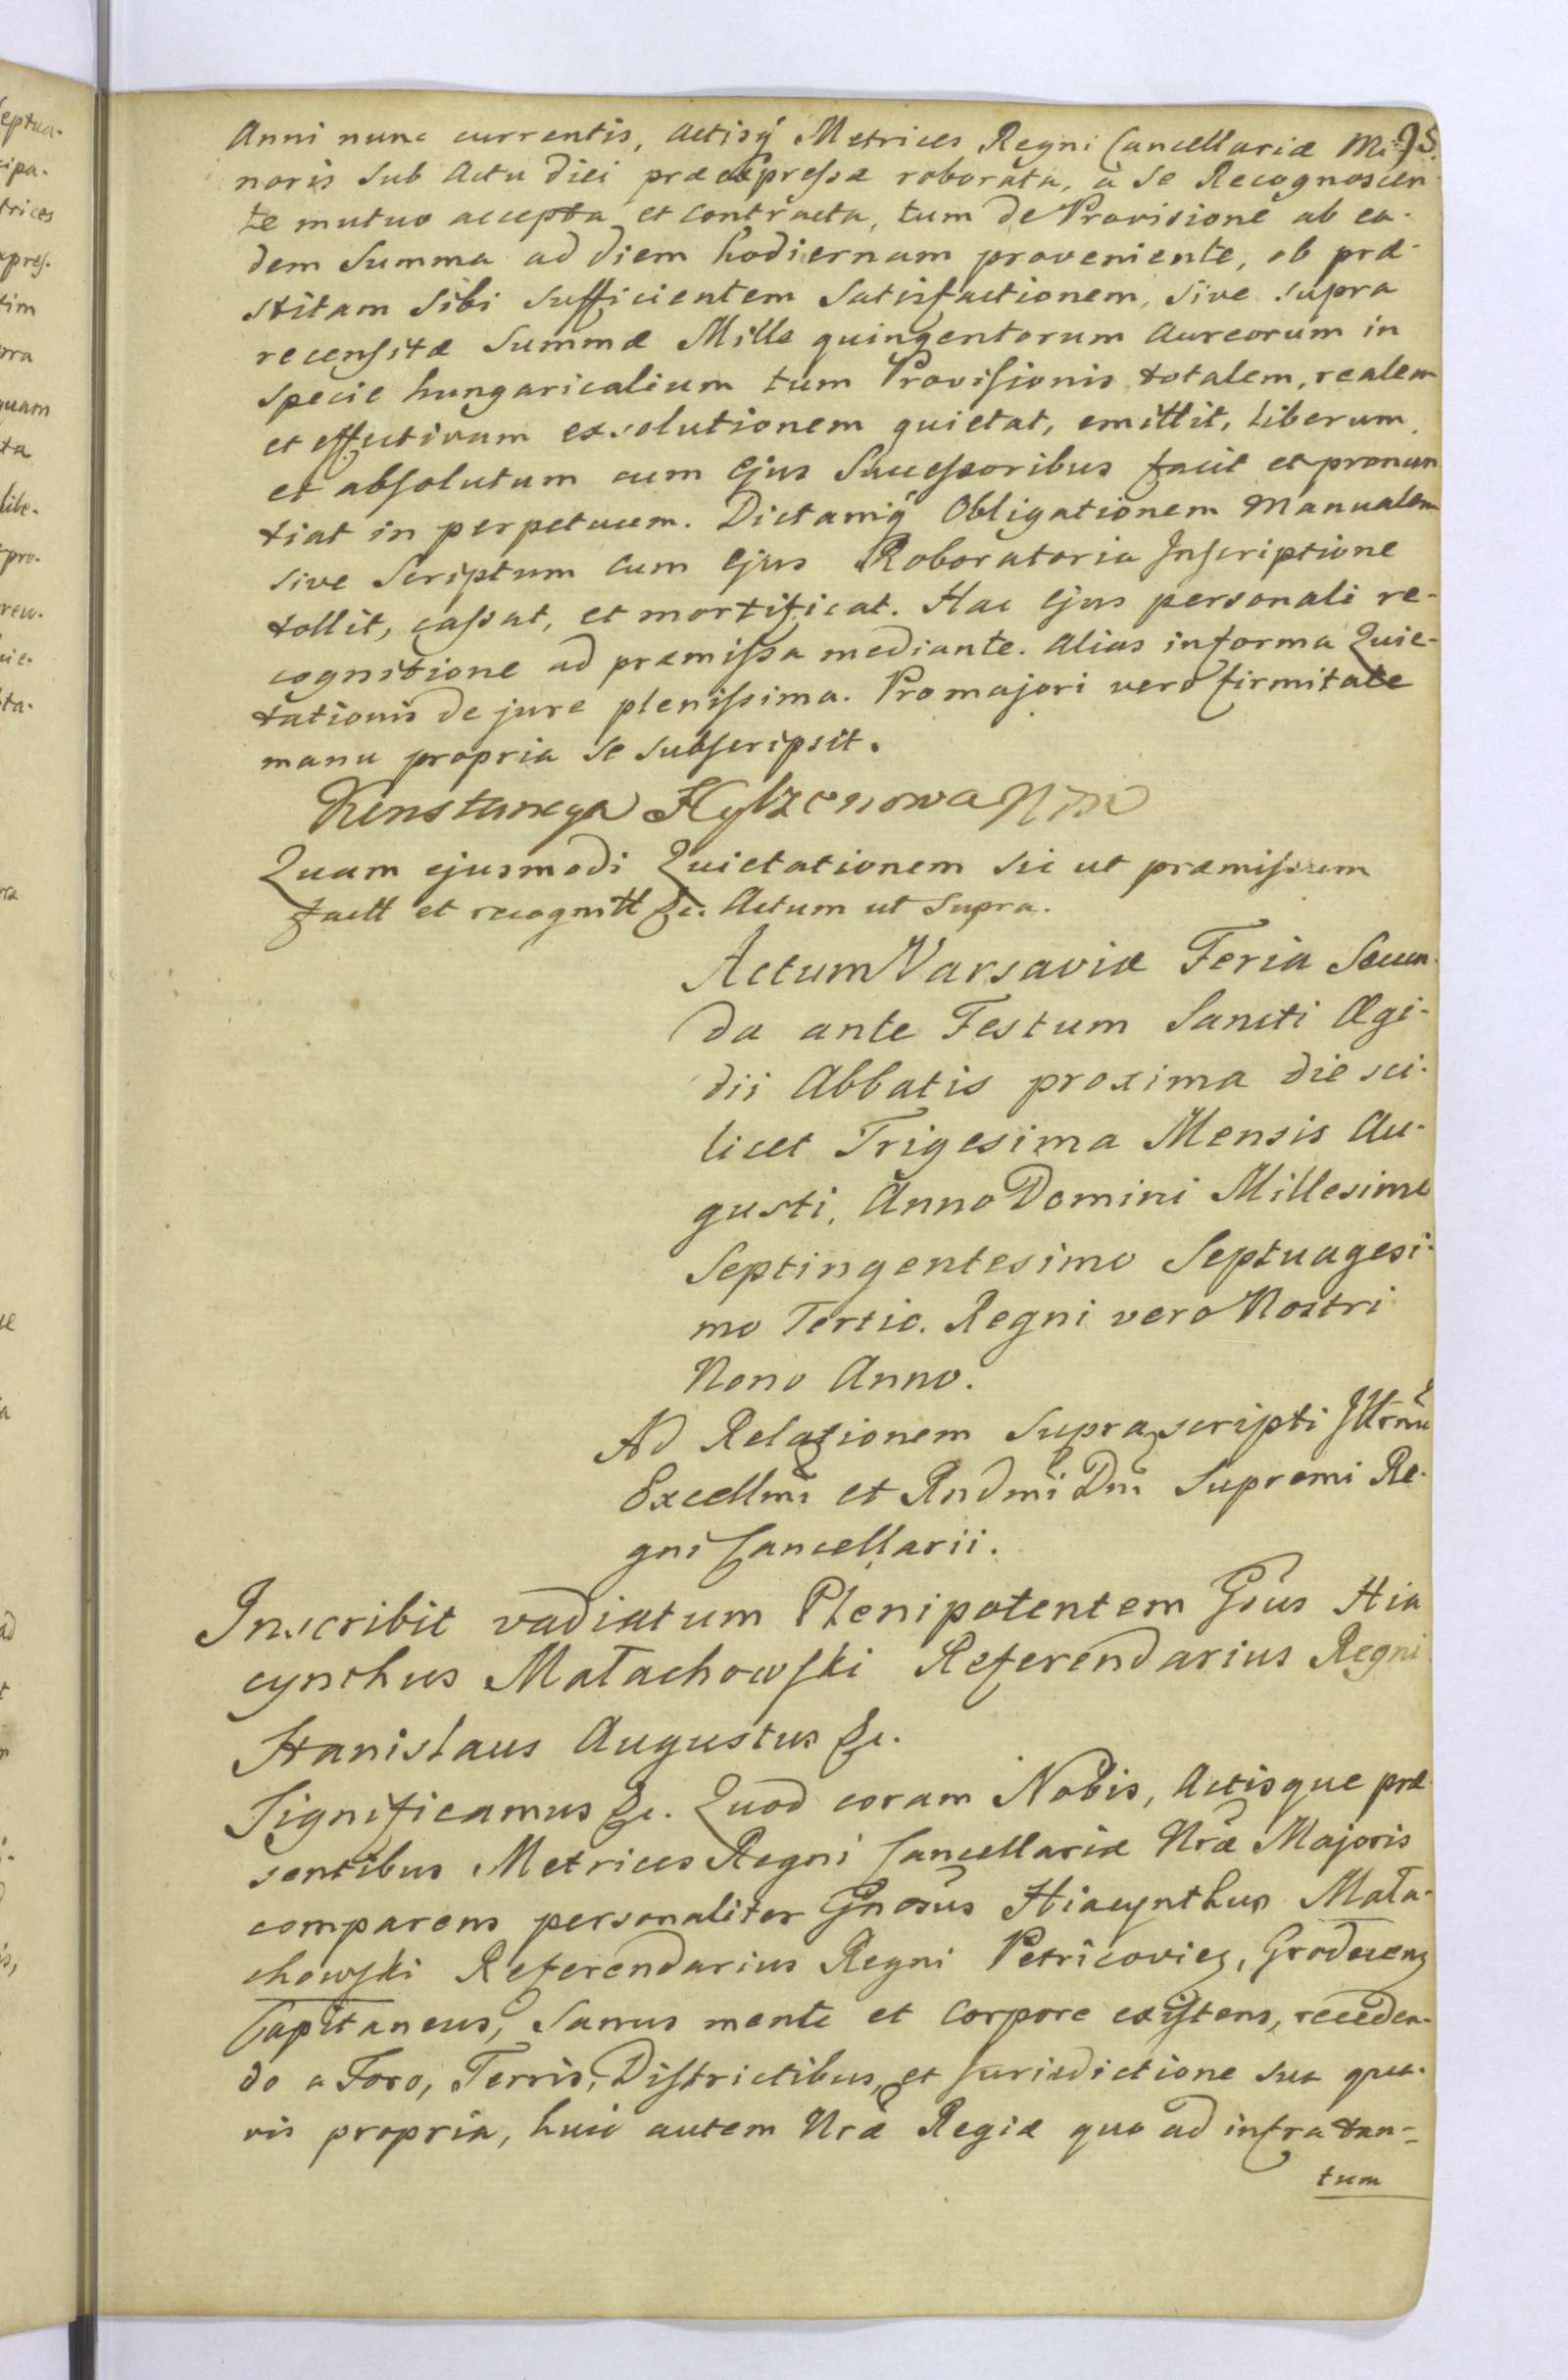 Anni nunc currentis, Actisq̃ Metrices Regni Cancellariæ Mi-
noris sub Actu diei præexpressæ roborata, a se Recognoscen-
te mutuo accepta et contracta, tum de Provisione ab ea-
dem Summa ad diem hodiernam proveniente, ob præ-
stitam sibi sufficientem Satisfactionem, sive supra
recensitæ Summæ Mille quingentorum Aureorum in
specie hungaricalium tum Provisionis totalem, realem
et effectivam exsolutionem quietat, emittit, liberum
et absolutum cum Ejus Successoribus facit et pronun
tiat in perpetuum. Dictamq̃ Obligationem Manualem
sive Scriptum cum Ejus Roboratoria Inscriptione
tollit, cassat, et mortificat. Hac Ejus personali re-
cognitione ad præmissa mediante. Alias in forma Quie-
tationis de jure plenissima. Pro majori vero firmitate
manu propria se subscripsit.
Konstancya Hylzenowa
Quam ejusmodi Quietationem sic ut præmissum
facit et recognitt &c. Actum ut supra.
Actum Varsaviæ Feria Secun-
da ante Festum Sancti Ægi-
dii Abbatis proxima die sci-
licet Trigesima Mensis Au-
gusti, Anno Domini Millesimo
Septingentesimo Septuagesi-
mo Tertio. Regni vero Nostri
Nono Anno.
Ad Relationem suprascripti Illrmi
Excellmi et Rndmi Dni Supremi Re-
gni Cancellarii.
Inscribit vadiatum Plenipotentem Gsus Hia
cynthus Małachowski Referendarius Regni
Stanislaus Augustus &c.
Significamus &c. Quod coram Nobis, Actisque præ
sentibus Metrices Regni Cancellariæ Nræ Majoris
comparens personaliter Gnosus Hiacynthus Mała-
chowski Referendarius Regni Petricovien, Grodecens
Capitaneus, Sanus mente et Corpore existens, receden-
do a Foro, Terris, Districtibus, et Jurisdictione sua qua-
vis propria, huic autem Nræ Regiæ quo ad infra tan-
tum